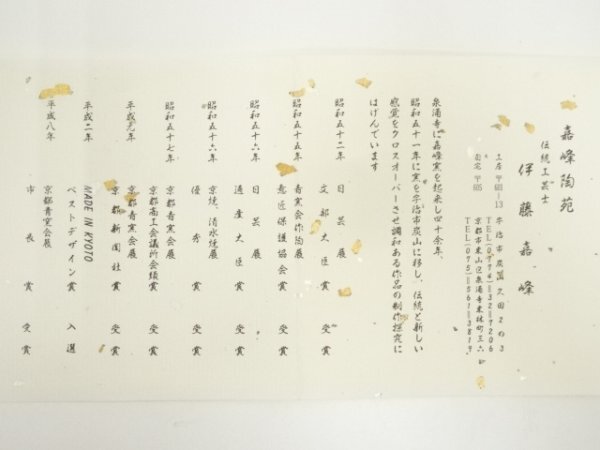 嘉峰陶苑
伝統工芸士
伊藤嘉峰
工房 〒603-13 宇治市炭山久田2の3
TEL(0774)32-7206
自宅 〒605 京都市東山区泉涌寺東林町三六
TEL(075)561-3819
泉涌寺に嘉峰窯を起来し四十余年、
昭和五十一年に窯を宇治市炭山に移し、伝統と新しい
感覚をクロスオーバーさせ調和ある作品の制作探究に
はげんでいます
昭和五十二年 日芸展
文部大臣賞 受賞
昭和五十五年 青窯会作陶展
意匠保護協会賞 受賞
昭和五十六年 日芸展
通産大臣賞 受賞
昭和五十六年 京焼、清水焼展
優秀賞 受賞
昭和五十七年 京都青窯会展
京都商工会議所会頭賞 受賞
平成元年 京都青窯会展
京都新聞社賞 受賞
平成二年 MADE IN KYOTO
ベストデザイン賞 入選
平成八年 京都青窯会展
市長賞 受賞